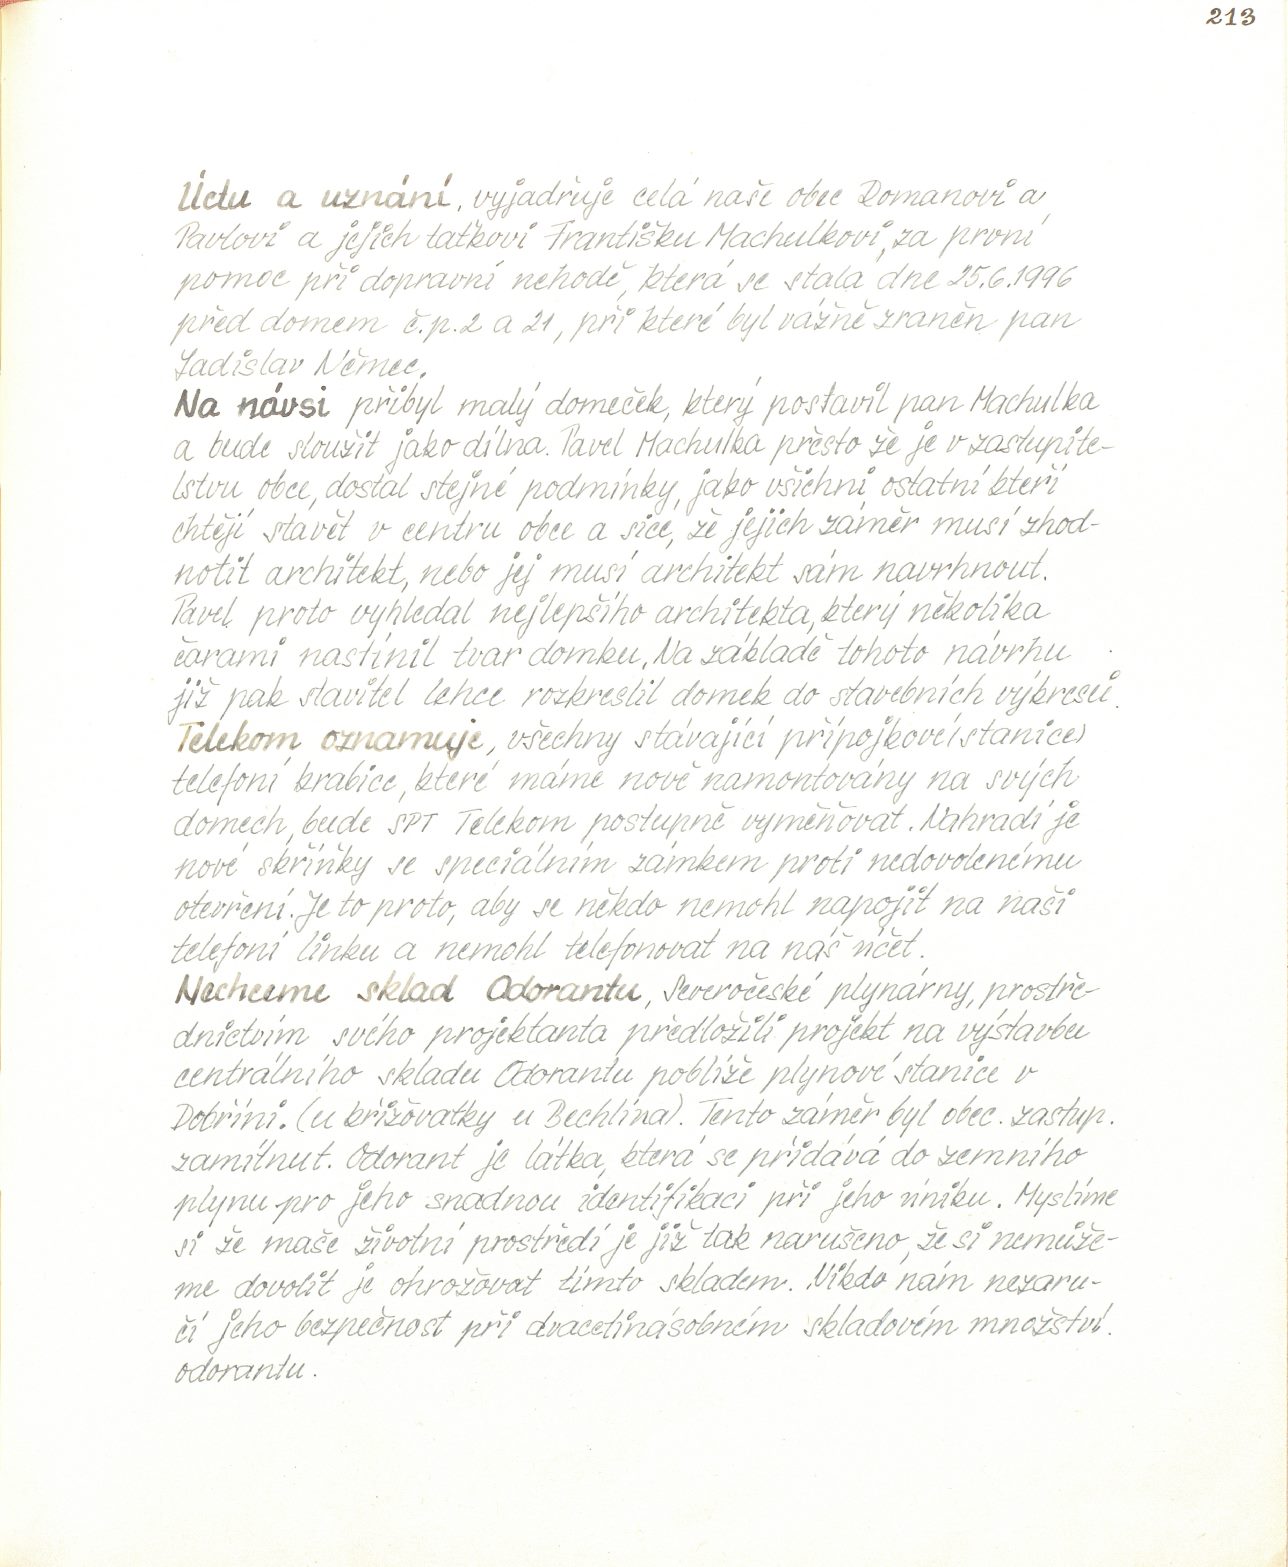 213
Úctu a uznání, vyjadřuje celá naše obec Romanovi a
Pavlovi a jejich taťkovi Františku Machulkovi, za první
pomoc při dopravní nehodě, která se stala dne 25.6.1996
před domem č.p. 2 a 21, při které byl vážně zraněn pan
Ladislav Němec.
Na návsi přibyl malý domeček, který postavil pan Machulka
a bude sloužit jako dílna. Pavel Machulka přesto že je v zastupite-
lstvu obce, dostal stejné podmínky, jako všichni ostatní kteří
chtějí stavět v centru obce a sice, že jejich záměr musí zhod-
notit architekt, nebo jej musí architekt sám navrhnout.
Pavel proto vyhledal nejlepšího architekta, který několika
čarami nastínil tvar domku. Na základě tohoto návrhu
již pak stavitel lehce rozkreslil domek do stavebních výkresů.
Telekom oznamuje, všechny stávající přípojkové (stanice)
telefoní krabice, které máme nově namontovány na svých
domech, bude SPT Telekom postupně vyměňovat. Nahradí je
nové skříňky se speciálním zámkem proti nedovolenému
otevření. Je to proto, aby se někdo nemohl napojit na naši
telefoní linku a nemohl telefonovat na náš účet.
Nechceme sklad Odorantu, Severočeské plynárny, prostře-
dnictvím svého projektanta předložili projekt na výstavbu
centrálního skladu Odorantu poblíže plynové stanice v
Dobříni. (u křižovatky u Bechlína). Tento záměr byl obec. zastup.
zamítnut. Odorant je látka, která se přidává do zemního
plynu pro jeho snadnou identifikaci při jeho úniku. Myslíme
si že maše životní prostředí je již tak narušeno, že si nemůže-
me dovolit je ohrožovat tímto skladem. Nikdo nám nezaru-
čí jeho bezpečnost při dvacetinásobném skladovém množství
odorantu.